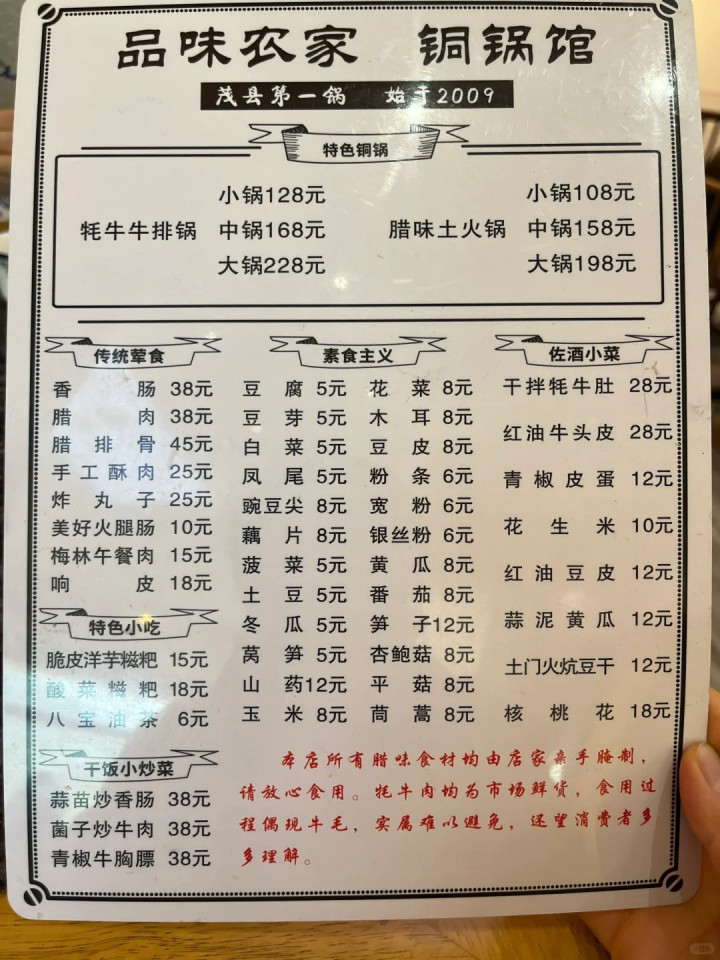 品味农家 铜锅馆
茂县第一锅 始于2009
特色铜锅
牦牛牛排锅
小锅128元
中锅168元
大锅228元
腊味土火锅
小锅108元
中锅158元
大锅198元
传统荤食
香肠 38元
腊肉 38元
腊排骨 45元
手工酥肉 25元
炸丸子 25元
美好火腿肠 10元
梅林午餐肉 15元
响皮 18元
特色小吃
脆皮洋芋糍粑 15元
酸菜糍粑 18元
八宝油茶 6元
干饭小炒菜
蒜苗炒香肠 38元
菌子炒牛肉 38元
青椒牛胸膘 38元
素食主义
豆腐 5元 花菜 8元
豆芽 5元 木耳 8元
白菜 5元 豆皮 8元
凤尾 5元 粉条 6元
豌豆尖 8元 宽粉 6元
藕片 8元 银丝粉 6元
菠菜 5元 黄瓜 8元
土豆 5元 番茄 8元
冬瓜 5元 笋子 12元
莴笋 5元 杏鲍菇 8元
山药 12元 平菇 8元
玉米 8元 茼蒿 8元
佐酒小菜
干拌牦牛肚 28元
红油牛头皮 28元
青椒皮蛋 12元
花生米 10元
红油豆皮 12元
蒜泥黄瓜 12元
土门火炕豆干 12元
核桃花 18元
本店所有腊味食材均由店家亲手腌制，
请放心食用。牦牛肉均为市场鲜货，食用过
程偶现牛毛，实属难以避免，还望消费者多
多理解。